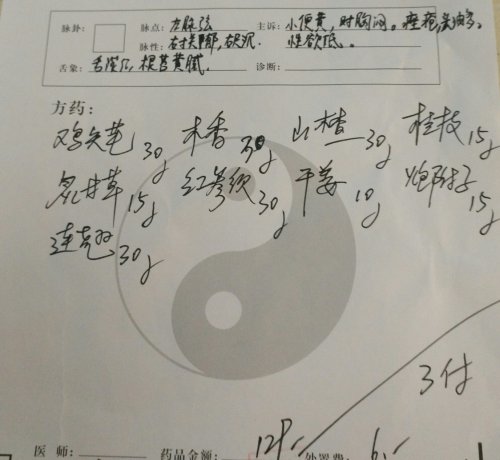 脉卦： 脉点：左脉弦 主诉：小便黄，时胸闷。痤疮，头油多。
脉性：右寸关郁，尺沉. 性欲低。
舌象：舌淫，根苔黄腻. 诊断：
方药：
鸡矢茏 30g 木香 30g 山楂 30g 桂枝 15g
炙甘草 15g 红参须 30g 干姜 10g 炮附子 15g
连翘 30g
3付
医 师： 药品金额： 129.- 处置费： 6.-